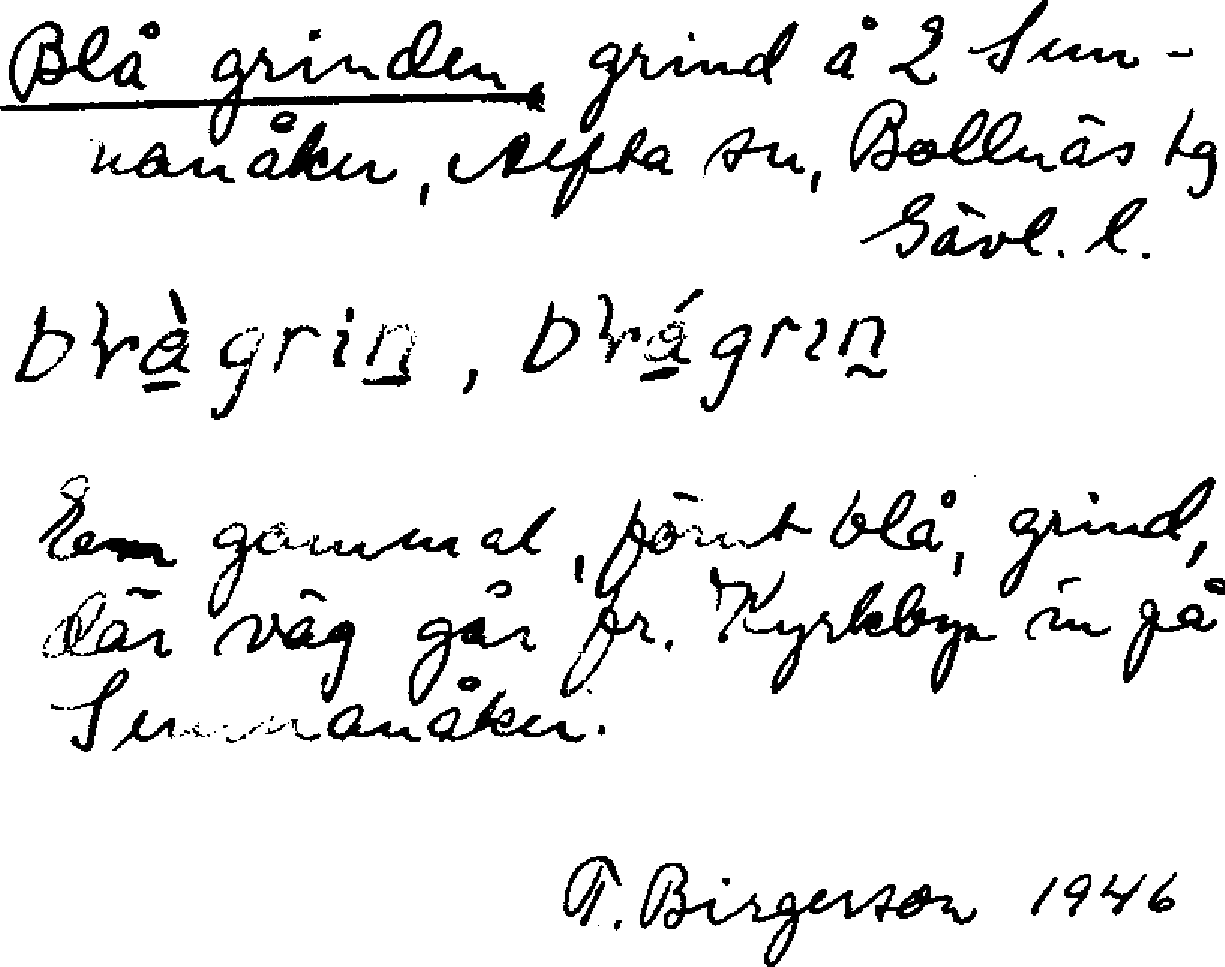 Blå grinden, grind å 2 Sun-
nanåker, Alfta sn, Bollnäs tg
Gävl. l.
En gammal, förut blå, grind,
där väg går fr. Kyrkbyn in på
Sunnanåker.
T. Birgerson 1946